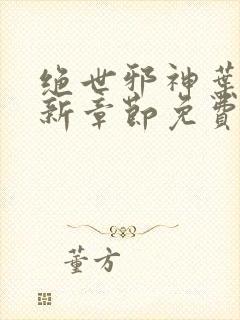 绝世邪神叶
新章节免费
董方